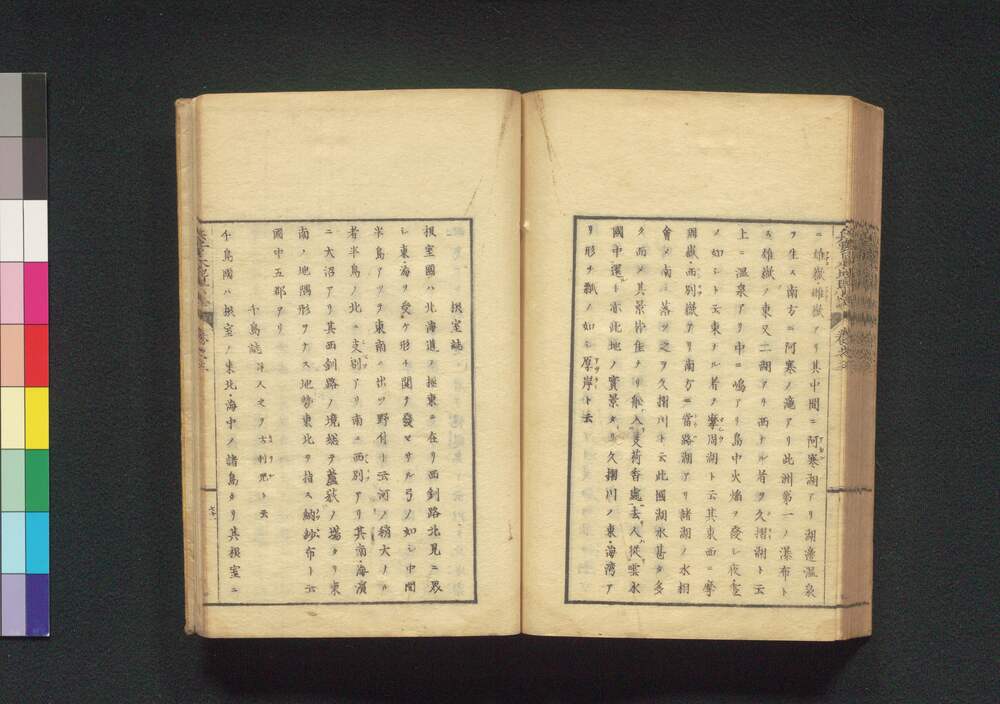 ニ雄嶽雌嶽アリ其中間ニ阿寒湖アリ湖邊温泉
ヲ生ス南方ニ阿寒ノ滝アリ此洲第一ノ瀑布ト
ス雄嶽ノ東又二湖アリ西ナル者ヲ久摺湖ト云
上ニ温泉アリ中ニ嶋アリ島中火焔ヲ發シ夜畫
ノ如シト云東ナル者ヲ摩周湖ト云其東西ニ摩
周嶽西別嶽アリ南方ニ當路湖アリ諸湖ノ水相
會メ南ニ落ツ之ヲ久摺川ト云此國湖水甚タ多
ク而メ其景皆佳ナリ舟人又荷香處去人從雲水
國中還ト亦此地ノ實景ナリ久摺川ノ東海湾ア
リ形チ瓢ノ如シ厚岸ト云
根室誌
根室國ハ北海道ノ極東ニ在リ西釧路北見ニ界
シ東海ヲ受ケ形チ開キ發セサル弓ノ如シ中間
半島アリテ東南ニ出ツ野付ト云河ノ稍大ナル
者半島ノ北ニ支別アリ南ニ西別アリ其南海濱
ニ大沼アリ其西釧路ノ境縂テ蘆荻ノ場タリ東
南ノ地隅形ヲナス地勢東北ヲ指ス納紗布ト云
國中五郡アリ
千島誌
千島國ハ根室ノ東北海中ノ諸島タリ其根室ニ